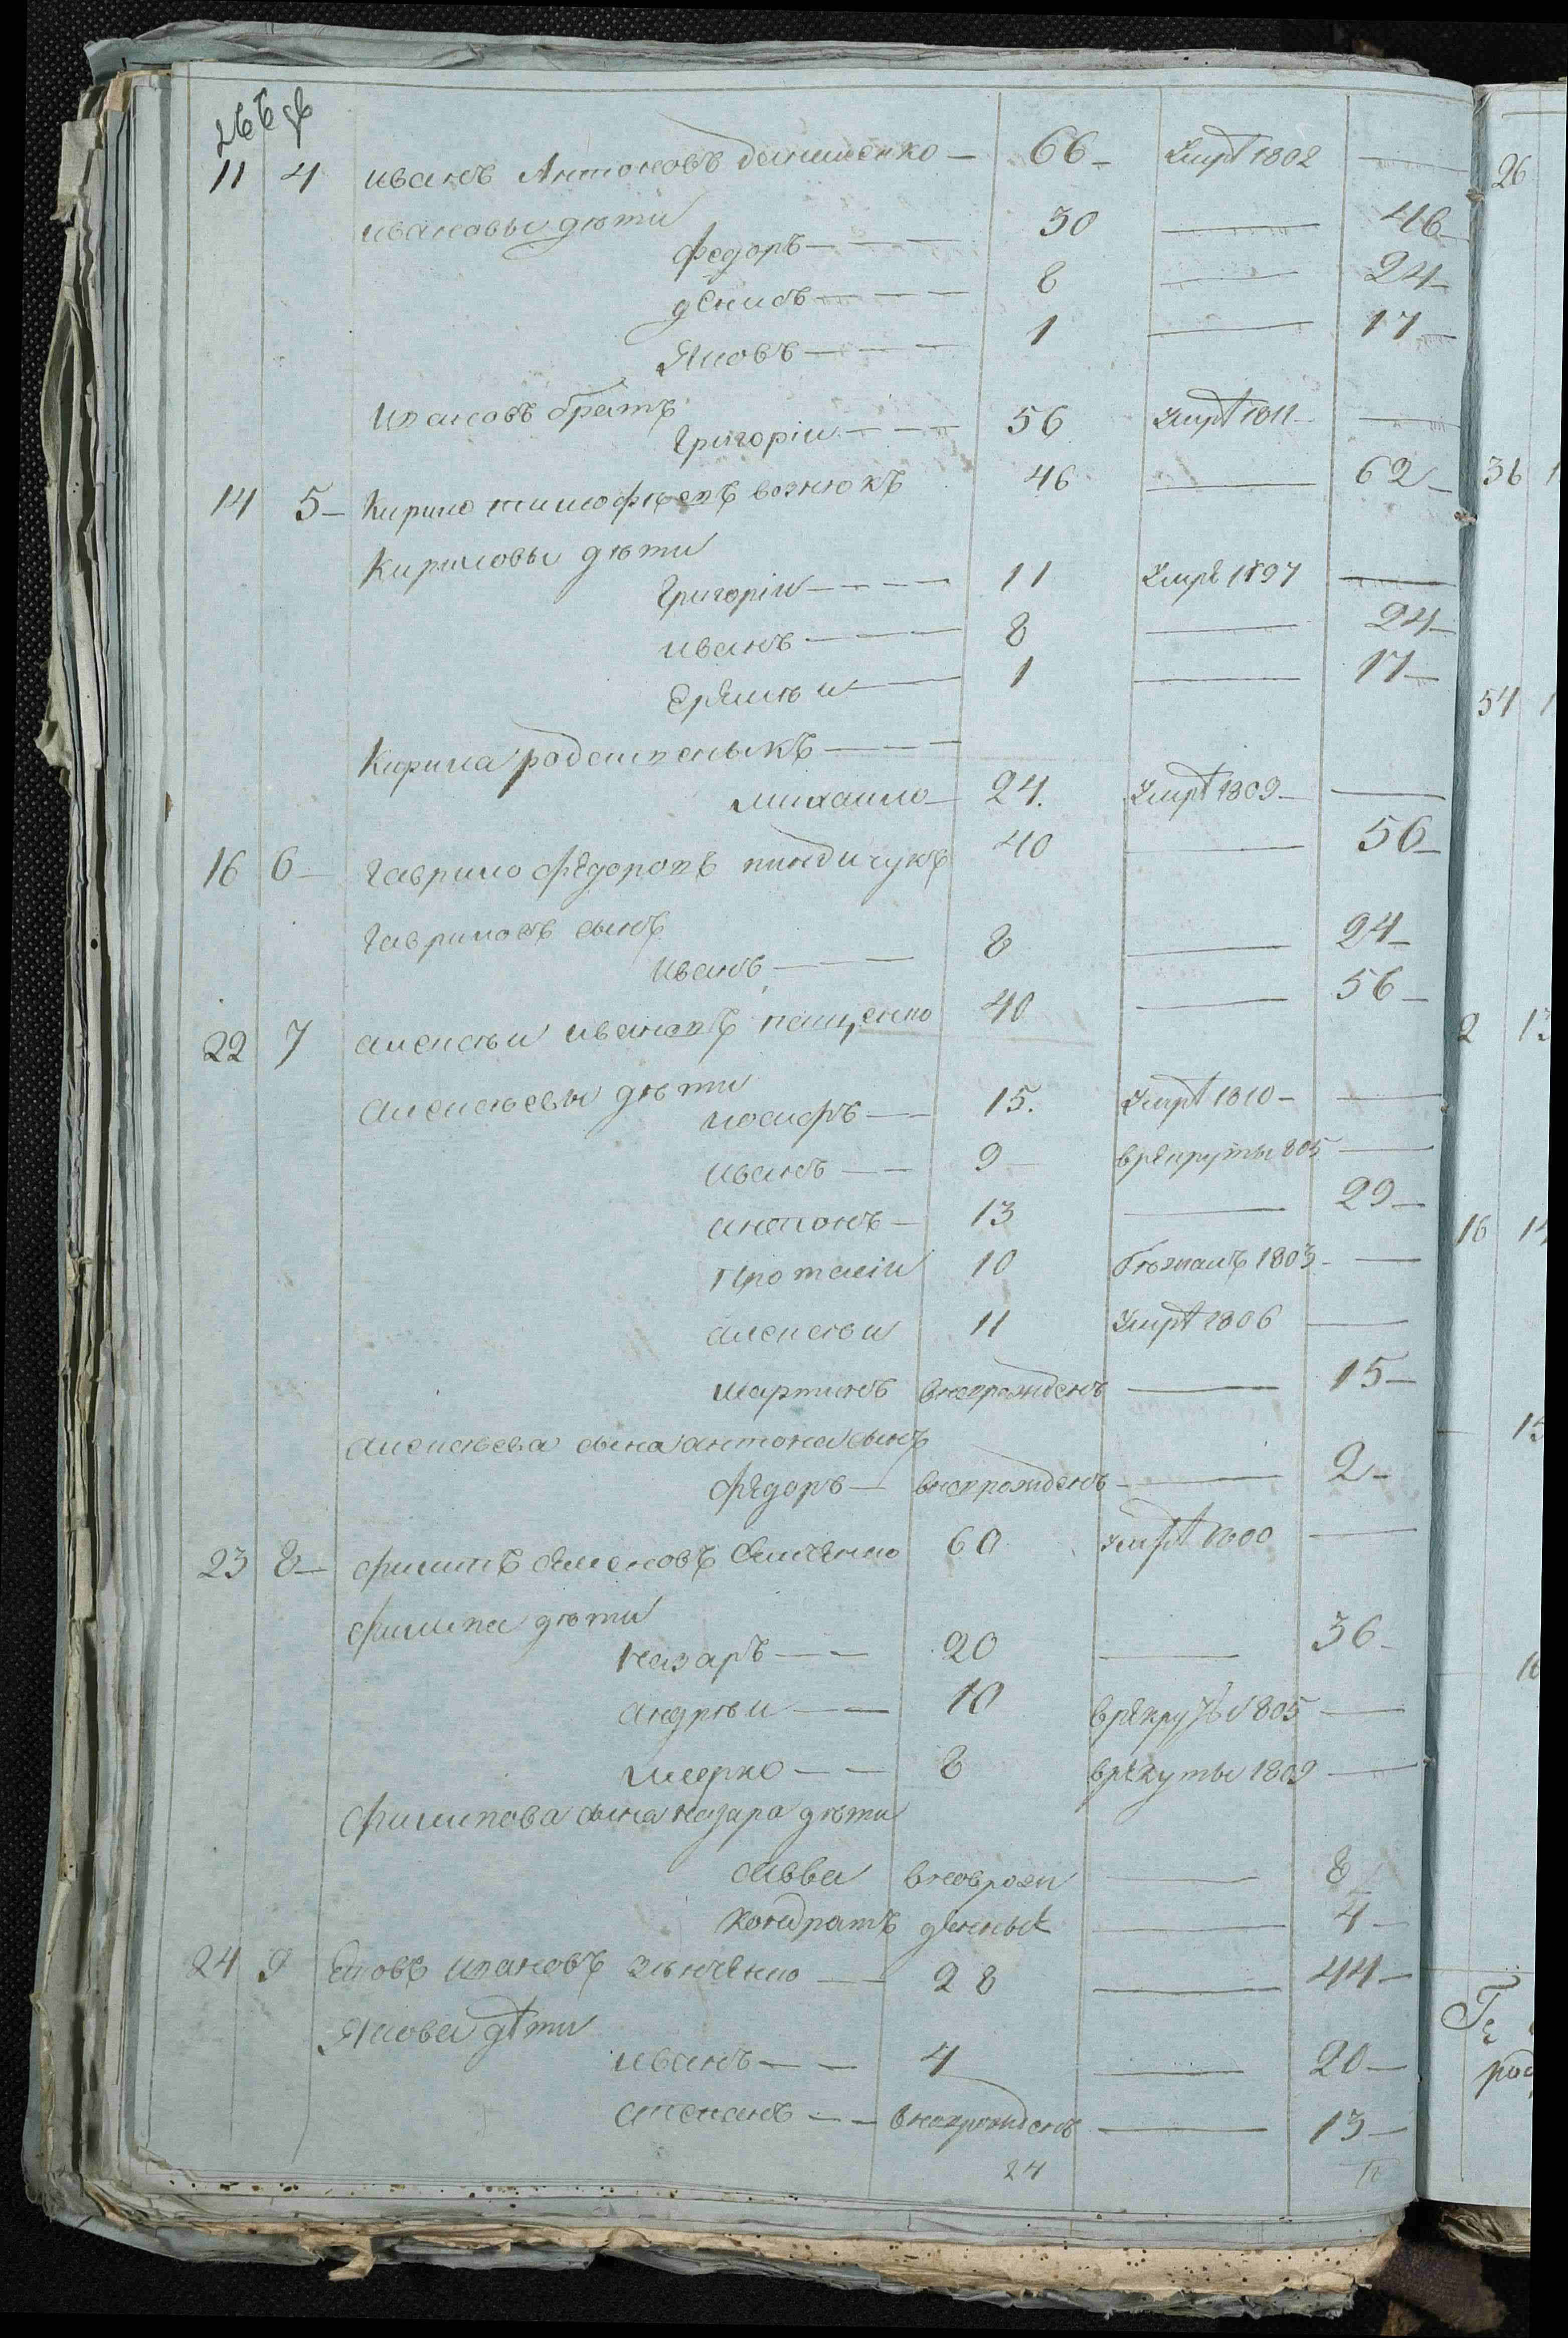 11 4 иванъ Антоновъ данименко — 66 — Умрѣ 1802 —
ивановы дѣти
федоръ — 30 — 46
денисъ — 8 — 24
Яковъ — 1 — 17
Ивановъ братъ
Григоріи — 56 Умрѣ 1811 —
14 5 Кирило тимофѣевъ вознюкъ 46 — 62
Кириловы дѣти
Григоріи — 11 Умрѣ 1797 —
иванъ — 8 — 24
Еремѣи — 1 — 17
Кирила родственыкъ —
михаило — 24. Умрѣ 1809 —
16 6 Гаврило федоровъ 40 — 56
Гавриловъ сынъ
Иванъ — 8 — 24
22 7 алексѣи ивановъ пащенко 40 — 56
алексѣевы дѣти
иосифъ — 15. Умрѣ 1810 —
иванъ — 9 — врекруты 805 —
антонъ — 13 — 29
Протасіи 10 бѣжалъ 1803 —
алексѣи 11 Умрѣ 1806 —
мартинъ вновьрожденъ — 15
алексѣева сына антона сынъ
федоръ — вновьрожденъ — 2
23 8 филипъ Семеновъ 60 Умрѣ 1800 —
филипа дѣти
назаръ — 20 — 36
андрѣи — 10 врекруты 1805 —
марко — 8 врекуты 1809 —
филипова сына назара дѣти
савва вноврож — 8
кондратъ денные — 4
24 9 Яковъ Ивановъ зѣнченко — 28 — 44
Якова дѣти
иванъ — 4 — 20
степанъ — вновьрожденъ — 13
24